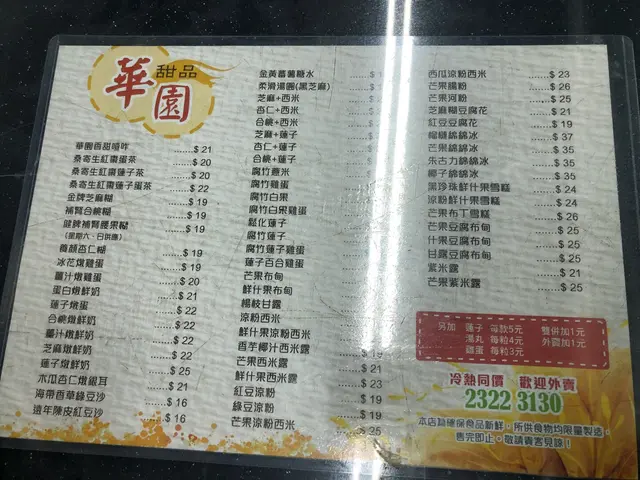 華園
甜品
華園香甜喳咋 ......$ 21
桑寄生紅棗蛋茶 ......$ 20
桑寄生紅棗蓮子茶 ......$ 20
桑寄生紅棗蓮子蛋茶 ......$ 22
金牌芝麻糊 ......$ 19
補腎合桃糊 ......$ 19
健脾補腎腰果糊 ......$ 19
(星期六、日供應)
養顏杏仁糊 ......$ 19
冰花燉雞蛋 ......$ 19
薑汁燉雞蛋 ......$ 20
蛋白燉鮮奶 ......$ 21
蓮子燉蛋 ......$ 22
合桃燉鮮奶 ......$ 22
薑汁燉鮮奶 ......$ 22
芝麻燉鮮奶 ......$ 22
蓮子燉鮮奶 ......$ 25
木瓜杏仁燉銀耳 ......$ 21
海帶香草綠豆沙 ......$ 16
遠年陳皮紅豆沙 ......$ 16
金黃蕃薯糖水
柔滑湯圓(黑芝麻)
芝麻+西米
杏仁+西米
合桃+西米
芝麻+蓮子
杏仁+蓮子
合桃+蓮子
腐竹薏米
腐竹雞蛋
腐竹白果
腐竹白果雞蛋
鬆化蓮子
腐竹蓮子
腐竹蓮子雞蛋
蓮子百合雞蛋
芒果布甸
鮮什果布甸
楊枝甘露
涼粉西米
鮮什果涼粉西米
香芋椰汁西米露
芒果西米露
鮮什果西米露
紅豆涼粉 ......$ 19
綠豆涼粉 ......$ 19
芒果涼粉西米 ......$ 25
西瓜涼粉西米 ......$ 23
芒果腸粉 ......$ 26
芒果河粉 ......$ 25
芝麻糊豆腐花 ......$ 21
紅豆豆腐花 ......$ 19
榴槤綿綿冰 ......$ 37
芒果綿綿冰 ......$ 35
朱古力綿綿冰 ......$ 35
椰子綿綿冰 ......$ 35
黑珍珠鮮什果雪糕 ......$ 24
涼粉鮮什果雪糕 ......$ 24
芒果布丁雪糕 ......$ 26
芒果豆腐布甸 ......$ 25
什果豆腐布甸 ......$ 25
甘露豆腐布甸 ......$ 25
紫米露 ......$ 21
芒果紫米露 ......$ 25
另加 蓮子 每款5元 雙併加1元
湯丸 每粒4元 外賣加1元
雞蛋 每粒3元
冷熱同價 歡迎外賣
2322 3130
本店為確保食品新鮮，所供食物均限量製造，
售完即止，敬請貴客見諒！